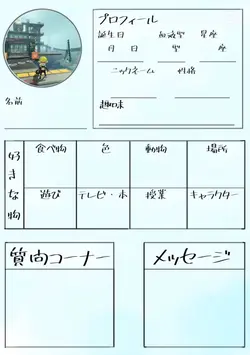 プロフィール
誕生日 血液型 星座
月 日 型 座
ニックネーム 性格
名前
趣味
好きな物
食べ物 色 動物 場所
遊び テレビ・本 授業 キャラクター
質問コーナー メッセージ